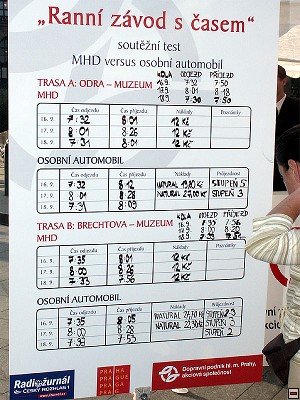 „Ranní závod s časem"
soutěžní test
MHD versus osobní automobil
KOLA ODJEZD PŘÍJEZD
TRASA A: ODRA – MUZEUM 16.9 7:32 7:50
17.9 8:01 8:18
MHD 18.9 7:30 7:50
Čas odjezdu Čas příjezdu Náklady Poznámky
16. 9. 7:32 8:01 12 Kč
17. 9. 8:01 8:26 12 Kč
18. 9. 7:31 8:01 12 Kč
OSOBNÍ AUTOMOBIL
Čas odjezdu Čas příjezdu Náklady Průjezdnost
16. 9. 7:32 8:12 NATURAL 19,80 Kč STUPEŇ 5
17. 9. 8:01 8:28 NATURAL 27,00 Kč STUPEŇ 3
18. 9. 7:31 8:09
KOLA ODJEZD PŘÍJEZD
TRASA B: BRECHTOVA – MUZEUM 16.9 7:35 7:56
17.9 8:00 8:20
MHD 18.9
Čas odjezdu Čas příjezdu Náklady Poznámky
16. 9. 7:35 8:01 12 Kč
17. 9. 8:00 8:26 12 Kč
18. 9. 7:33 7:56 12 Kč
OSOBNÍ AUTOMOBIL
Čas odjezdu Čas příjezdu Náklady Průjezdnost
16. 9. 7:35 8:05 NATURAL 27,70 Kč STUPEŇ 3
17. 9. 8:00 8:28 NATURAL STUPEŇ 3
18. 9. 7:33 7:53 STUPEŇ 2
Radiožurnál
ČESKÝ ROZHLAS 1
PRAHA
PRAGUE
PRAGA
PRAG
Dopravní podnik hl. m. Prahy,
akciová společnost